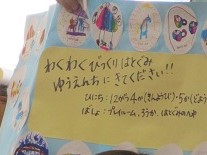 わくわくびっくりはとぐみ
ゆうえんちにきてください!!
ひにち:12がつ4か(きんようび)・5か(どようび)
ばしょ:プレイルーム、ろうか、はとぐみのへや